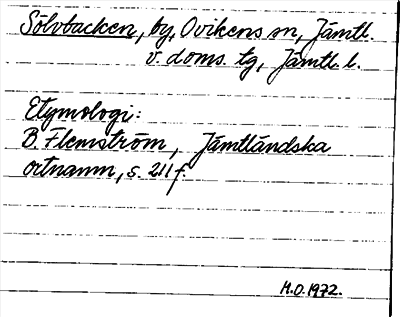 Sölvbacken, by, Ovikens sn, Jämtl.
v. doms. tg, Jämtl. l.
Etymologi:
B. Flemström, Jämtländska
ortnamn, s. 211 f.
H.O. 1972.